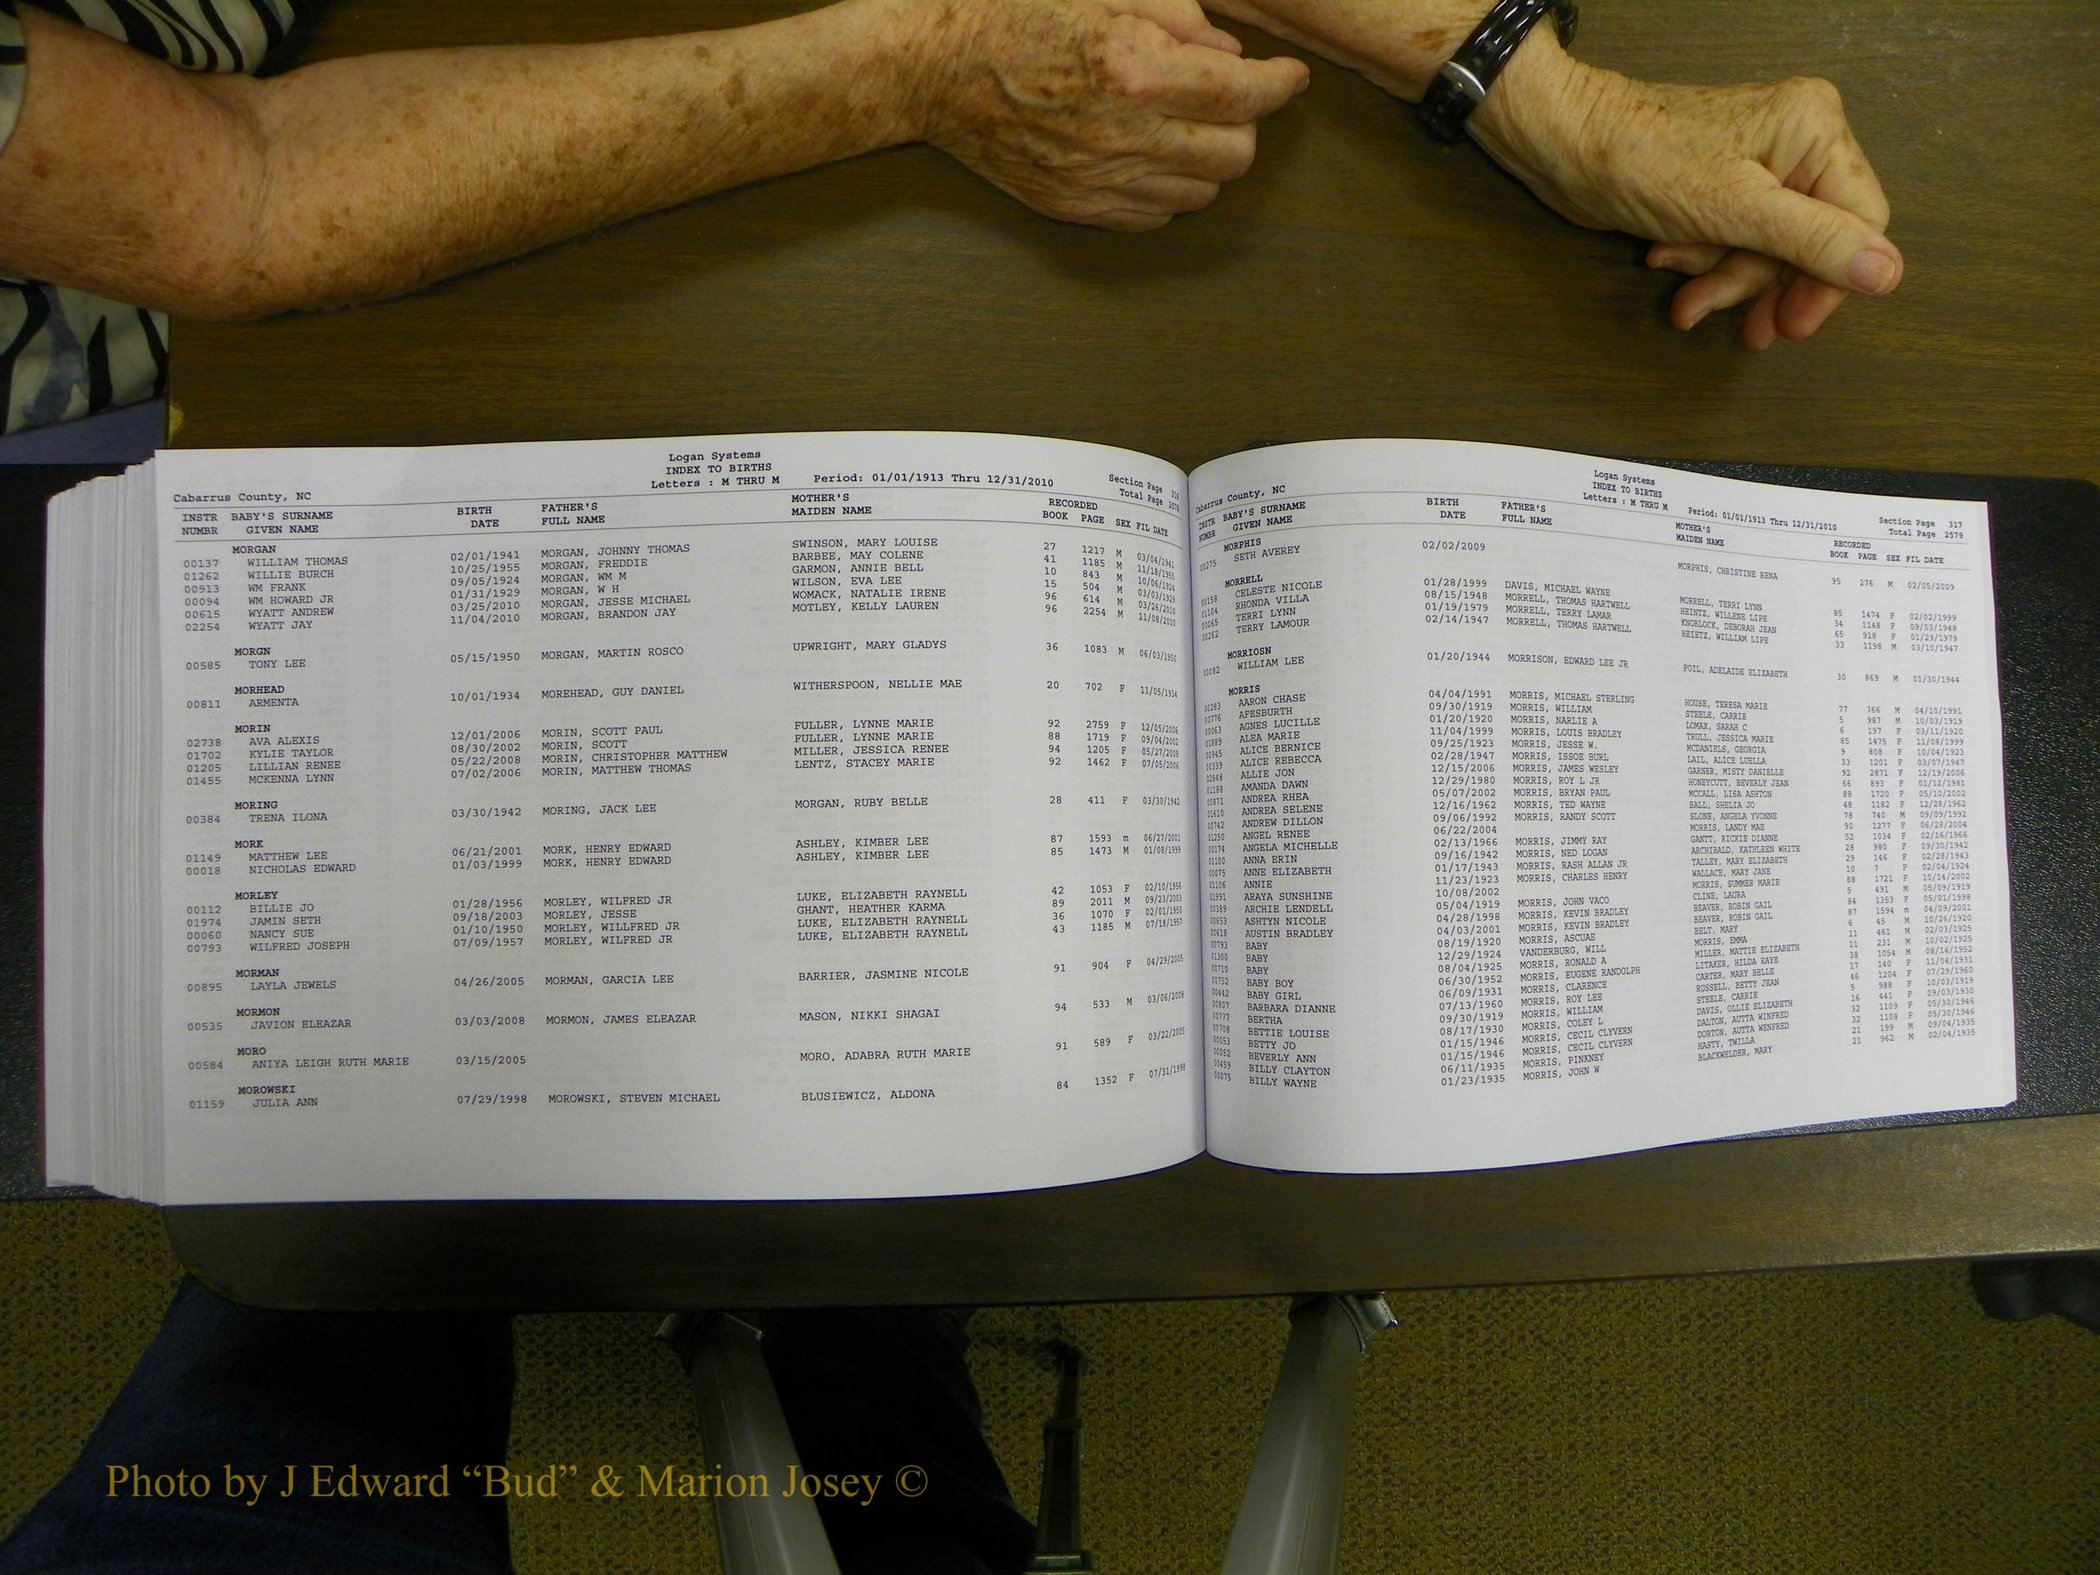 Logan Systems
INDEX TO BIRTHS
Letters : M THRU M Period: 01/01/1913 Thru 12/31/2010 Section Page 316
Cabarrus County, NC Total Page 2578
INSTR BABY'S SURNAME BIRTH FATHER'S MOTHER'S RECORDED
NUMBR GIVEN NAME DATE FULL NAME MAIDEN NAME BOOK PAGE SEX FIL DATE
MORGAN
00137 WILLIAM THOMAS 02/01/1941 MORGAN, JOHNNY THOMAS SWINSON, MARY LOUISE 27 1217 M 03/04/1941
01262 WILLIE BURCH 10/25/1955 MORGAN, FREDDIE BARBEE, MAY COLENE 41 1185 M 11/18/1955
00913 WM FRANK 09/05/1924 MORGAN, WM M GARMON, ANNIE BELL 10 843 M 10/06/1924
00094 WM HOWARD JR 01/31/1929 MORGAN, W H WILSON, EVA LEE 15 504 M 03/03/1929
00615 WYATT ANDREW 03/25/2010 MORGAN, JESSE MICHAEL WOMACK, NATALIE IRENE 96 614 M 03/26/2010
02254 WYATT JAY 11/04/2010 MORGAN, BRANDON JAY MOTLEY, KELLY LAUREN 96 2254 M 11/08/2010
MORGN
00585 TONY LEE 05/15/1950 MORGAN, MARTIN ROSCO UPWRIGHT, MARY GLADYS 36 1083 M 06/03/1950
MORHEAD
00811 ARMENTA 10/01/1934 MOREHEAD, GUY DANIEL WITHERSPOON, NELLIE MAE 20 702 F 11/05/1934
MORIN
02738 AVA ALEXIS 12/01/2006 MORIN, SCOTT PAUL FULLER, LYNNE MARIE 92 2759 F 12/05/2006
01702 KYLIE TAYLOR 08/30/2002 MORIN, SCOTT FULLER, LYNNE MARIE 88 1719 F 09/04/2002
01205 LILLIAN RENEE 05/22/2008 MORIN, CHRISTOPHER MATTHEW MILLER, JESSICA RENEE 94 1205 F 05/27/2008
01455 MCKENNA LYNN 07/02/2006 MORIN, MATTHEW THOMAS LENTZ, STACEY MARIE 92 1462 F 07/05/2006
MORING
00384 TRENA ILONA 03/30/1942 MORING, JACK LEE MORGAN, RUBY BELLE 28 411 F 03/30/1942
MORK
01149 MATTHEW LEE 06/21/2001 MORK, HENRY EDWARD ASHLEY, KIMBER LEE 87 1593 m 06/27/2001
00018 NICHOLAS EDWARD 01/03/1999 MORK, HENRY EDWARD ASHLEY, KIMBER LEE 85 1473 M 01/08/1999
MORLEY
00112 BILLIE JO 01/28/1956 MORLEY, WILFRED JR LUKE, ELIZABETH RAYNELL 42 1053 F 02/10/1956
01974 JAMIN SETH 09/18/2003 MORLEY, JESSE GHANT, HEATHER KARMA 89 2011 M 09/23/2003
00060 NANCY SUE 01/10/1950 MORLEY, WILLFRED JR LUKE, ELIZABETH RAYNELL 36 1070 F 02/01/1950
00793 WILFRED JOSEPH 07/09/1957 MORLEY, WILFRED JR LUKE, ELIZABETH RAYNELL 43 1185 M 07/18/1957
MORMAN
00895 LAYLA JEWELS 04/26/2005 MORMAN, GARCIA LEE BARRIER, JASMINE NICOLE 91 904 F 04/29/2005
MORMON
00535 JAVION ELEAZAR 03/03/2008 MORMON, JAMES ELEAZAR MASON, NIKKI SHAGAI 94 533 M 03/06/2008
MORO
00584 ANIYA LEIGH RUTH MARIE 03/15/2005 MORO, ADABRA RUTH MARIE 91 589 F 03/22/2005
MOROWSKI
01159 JULIA ANN 07/29/1998 MOROWSKI, STEVEN MICHAEL BLUSIEWICZ, ALDONA 84 1352 F 07/31/1998
Logan Systems
INDEX TO BIRTHS
Letters : M THRU M Period: 01/01/1913 Thru 12/31/2010 Section Page 317
Cabarrus County, NC Total Page 2579
INSTR BABY'S SURNAME BIRTH FATHER'S MOTHER'S RECORDED
NUMBR GIVEN NAME DATE FULL NAME MAIDEN NAME BOOK PAGE SEX FIL DATE
MORPHIS
00275 SETH AVEREY 02/02/2009 MORPHIS, CHRISTINE RENA 95 276 M 02/05/2009
MORRELL
00158 CELESTE NICOLE 01/28/1999 DAVIS, MICHAEL WAYNE MORRELL, TERRI LYNN 85 1474 F 02/02/1999
01104 RHONDA VILLA 08/15/1948 MORRELL, THOMAS HARTWELL HEINTZ, WILLENE LIPE 34 1148 F 09/03/1948
00065 TERRI LYNN 01/19/1979 MORRELL, TERRY LAMAR KNOBLOCK, DEBORAH JEAN 65 918 F 01/29/1979
00262 TERRY LAMOUR 02/14/1947 MORRELL, THOMAS HARTWELL HEIETZ, WILLIAM LIPE 33 1198 M 03/10/1947
MORRIOSN
00082 WILLIAM LEE 01/20/1944 MORRISON, EDWARD LEE JR FOIL, ADELAIDE ELIZABETH 30 869 M 01/30/1944
MORRIS
00283 AARON CHASE 04/04/1991 MORRIS, MICHAEL STERLING HOUSE, TERESA MARIE 77 766 M 04/10/1991
00776 AFESBURTH 09/30/1919 MORRIS, WILLIAM STEELE, CARRIE 5 987 M 10/03/1919
00063 AGNES LUCILLE 01/20/1920 MORRIS, NARLIE A LOMAX, SARAH C 6 197 F 03/11/1920
01889 ALEA MARIE 11/04/1999 MORRIS, LOUIS BRADLEY TRULL, JESSICA MARIE 85 1475 F 11/08/1999
00945 ALICE BERNICE 09/25/1923 MORRIS, JESSE W. MCDANIELS, GEORGIA 9 808 F 10/04/1923
00339 ALICE REBECCA 02/28/1947 MORRIS, ISSOE BURL LAIL, ALICE LUELLA 33 1201 F 03/07/1947
02848 ALLIE JON 12/15/2006 MORRIS, JAMES WESLEY GARNER, MISTY DANIELLE 92 2871 F 12/19/2006
01188 AMANDA DAWN 12/29/1980 MORRIS, ROY L JR HONEYCUTT, BEVERLY JEAN 66 893 F 01/12/1981
00871 ANDREA RHEA 05/07/2002 MORRIS, BRYAN PAUL MCCALL, LISA ASHTON 88 1720 F 05/10/2002
01610 ANDREA SELENE 12/16/1962 MORRIS, TED WAYNE BALL, SHELIA JO 48 1182 F 12/28/1962
00742 ANDREW DILLON 09/06/1992 MORRIS, RANDY SCOTT SLONE, ANGELA YVONNE 78 740 M 09/09/1992
01250 ANGEL RENEE 06/22/2004 MORRIS, LANDY MAE 90 1277 F 06/28/2004
00174 ANGELA MICHELLE 02/13/1966 MORRIS, JIMMY RAY GANTT, RICKIE DIANNE 52 1034 F 02/16/1966
01100 ANNA ERIN 09/16/1942 MORRIS, NED LOGAN ARCHIBALD, KATHLEEN WHITE 28 980 F 09/30/1942
00075 ANNE ELIZABETH 01/17/1943 MORRIS, RASH ALLAN JR TALLEY, MARY ELIZABETH 29 146 F 02/28/1943
01106 ANNIE 11/23/1923 MORRIS, CHARLES HENRY WALLACE, MARY JANE 10 7 F 02/04/1924
01991 ARAYA SUNSHINE 10/08/2002 MORRIS, SUMMER MARIE 88 1721 F 10/14/2002
00389 ARCHIE LENDELL 05/04/1919 MORRIS, JOHN VACO CLINE, LAURA 5 491 M 05/09/1919
00653 ASHTYN NICOLE 04/28/1998 MORRIS, KEVIN BRADLEY BEAVER, ROBIN GAIL 84 1353 F 05/01/1998
00618 AUSTIN BRADLEY 04/03/2001 MORRIS, KEVIN BRADLEY BEAVER, ROBIN GAIL 87 1594 m 04/09/2001
00793 BABY 08/19/1920 MORRIS, ASCUAE BELT, MARY 6 45 M 10/26/1920
01300 BABY 12/29/1924 VANDERBURG, WILL MORRIS, EMMA 11 461 M 02/03/1925
00710 BABY 08/04/1925 MORRIS, RONALD A MILLER, MATTIE ELIZABETH 11 231 M 10/02/1925
00752 BABY BOY 06/30/1952 MORRIS, EUGENE RANDOLPH LITAKER, HILDA RAYE 38 1054 M 08/14/1952
00442 BABY GIRL 06/09/1931 MORRIS, CLARENCE CARTER, MARY BELLE 17 140 F 11/04/1931
00807 BARBARA DIANNE 07/13/1960 MORRIS, ROY LEE RUSSELL, BETTY JEAN 46 1204 F 07/29/1960
00777 BERTHA 09/30/1919 MORRIS, WILLIAM STEELE, CARRIE 5 988 F 10/03/1919
00708 BETTIE LOUISE 08/17/1930 MORRIS, COLEY L DAVIS, OLLIE ELIZABETH 16 441 F 09/03/1930
00053 BETTY JO 01/15/1946 MORRIS, CECIL CLYVERN DALTON, AUTTA WINFRED 32 1109 F 05/30/1946
00052 BEVERLY ANN 01/15/1946 MORRIS, CECIL CLYVERN DORTON, AUTTA WENFRED 32 1108 F 05/30/1946
00459 BILLY CLAYTON 06/11/1935 MORRIS, PINKNEY HASTY, TWILLA 21 199 M 09/04/1935
00075 BILLY WAYNE 01/23/1935 MORRIS, JOHN W BLACKWELDER, MARY 21 962 M 02/04/1935
Photo by J Edward “Bud” & Marion Josey ©